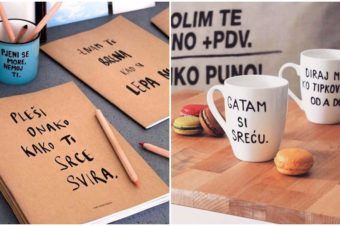 PJENI SE
MORE,
NEMOJ
TI.
PLEŠI
ONAKO
KAKO TI
SRCE
SVIRA.
KAO
LEPA
OLIM TE
NO +PDV.
IKO PUNO!
GATAM
SI
SREĆU.
DIRAJ M
KO TIPKOV
OD A DO